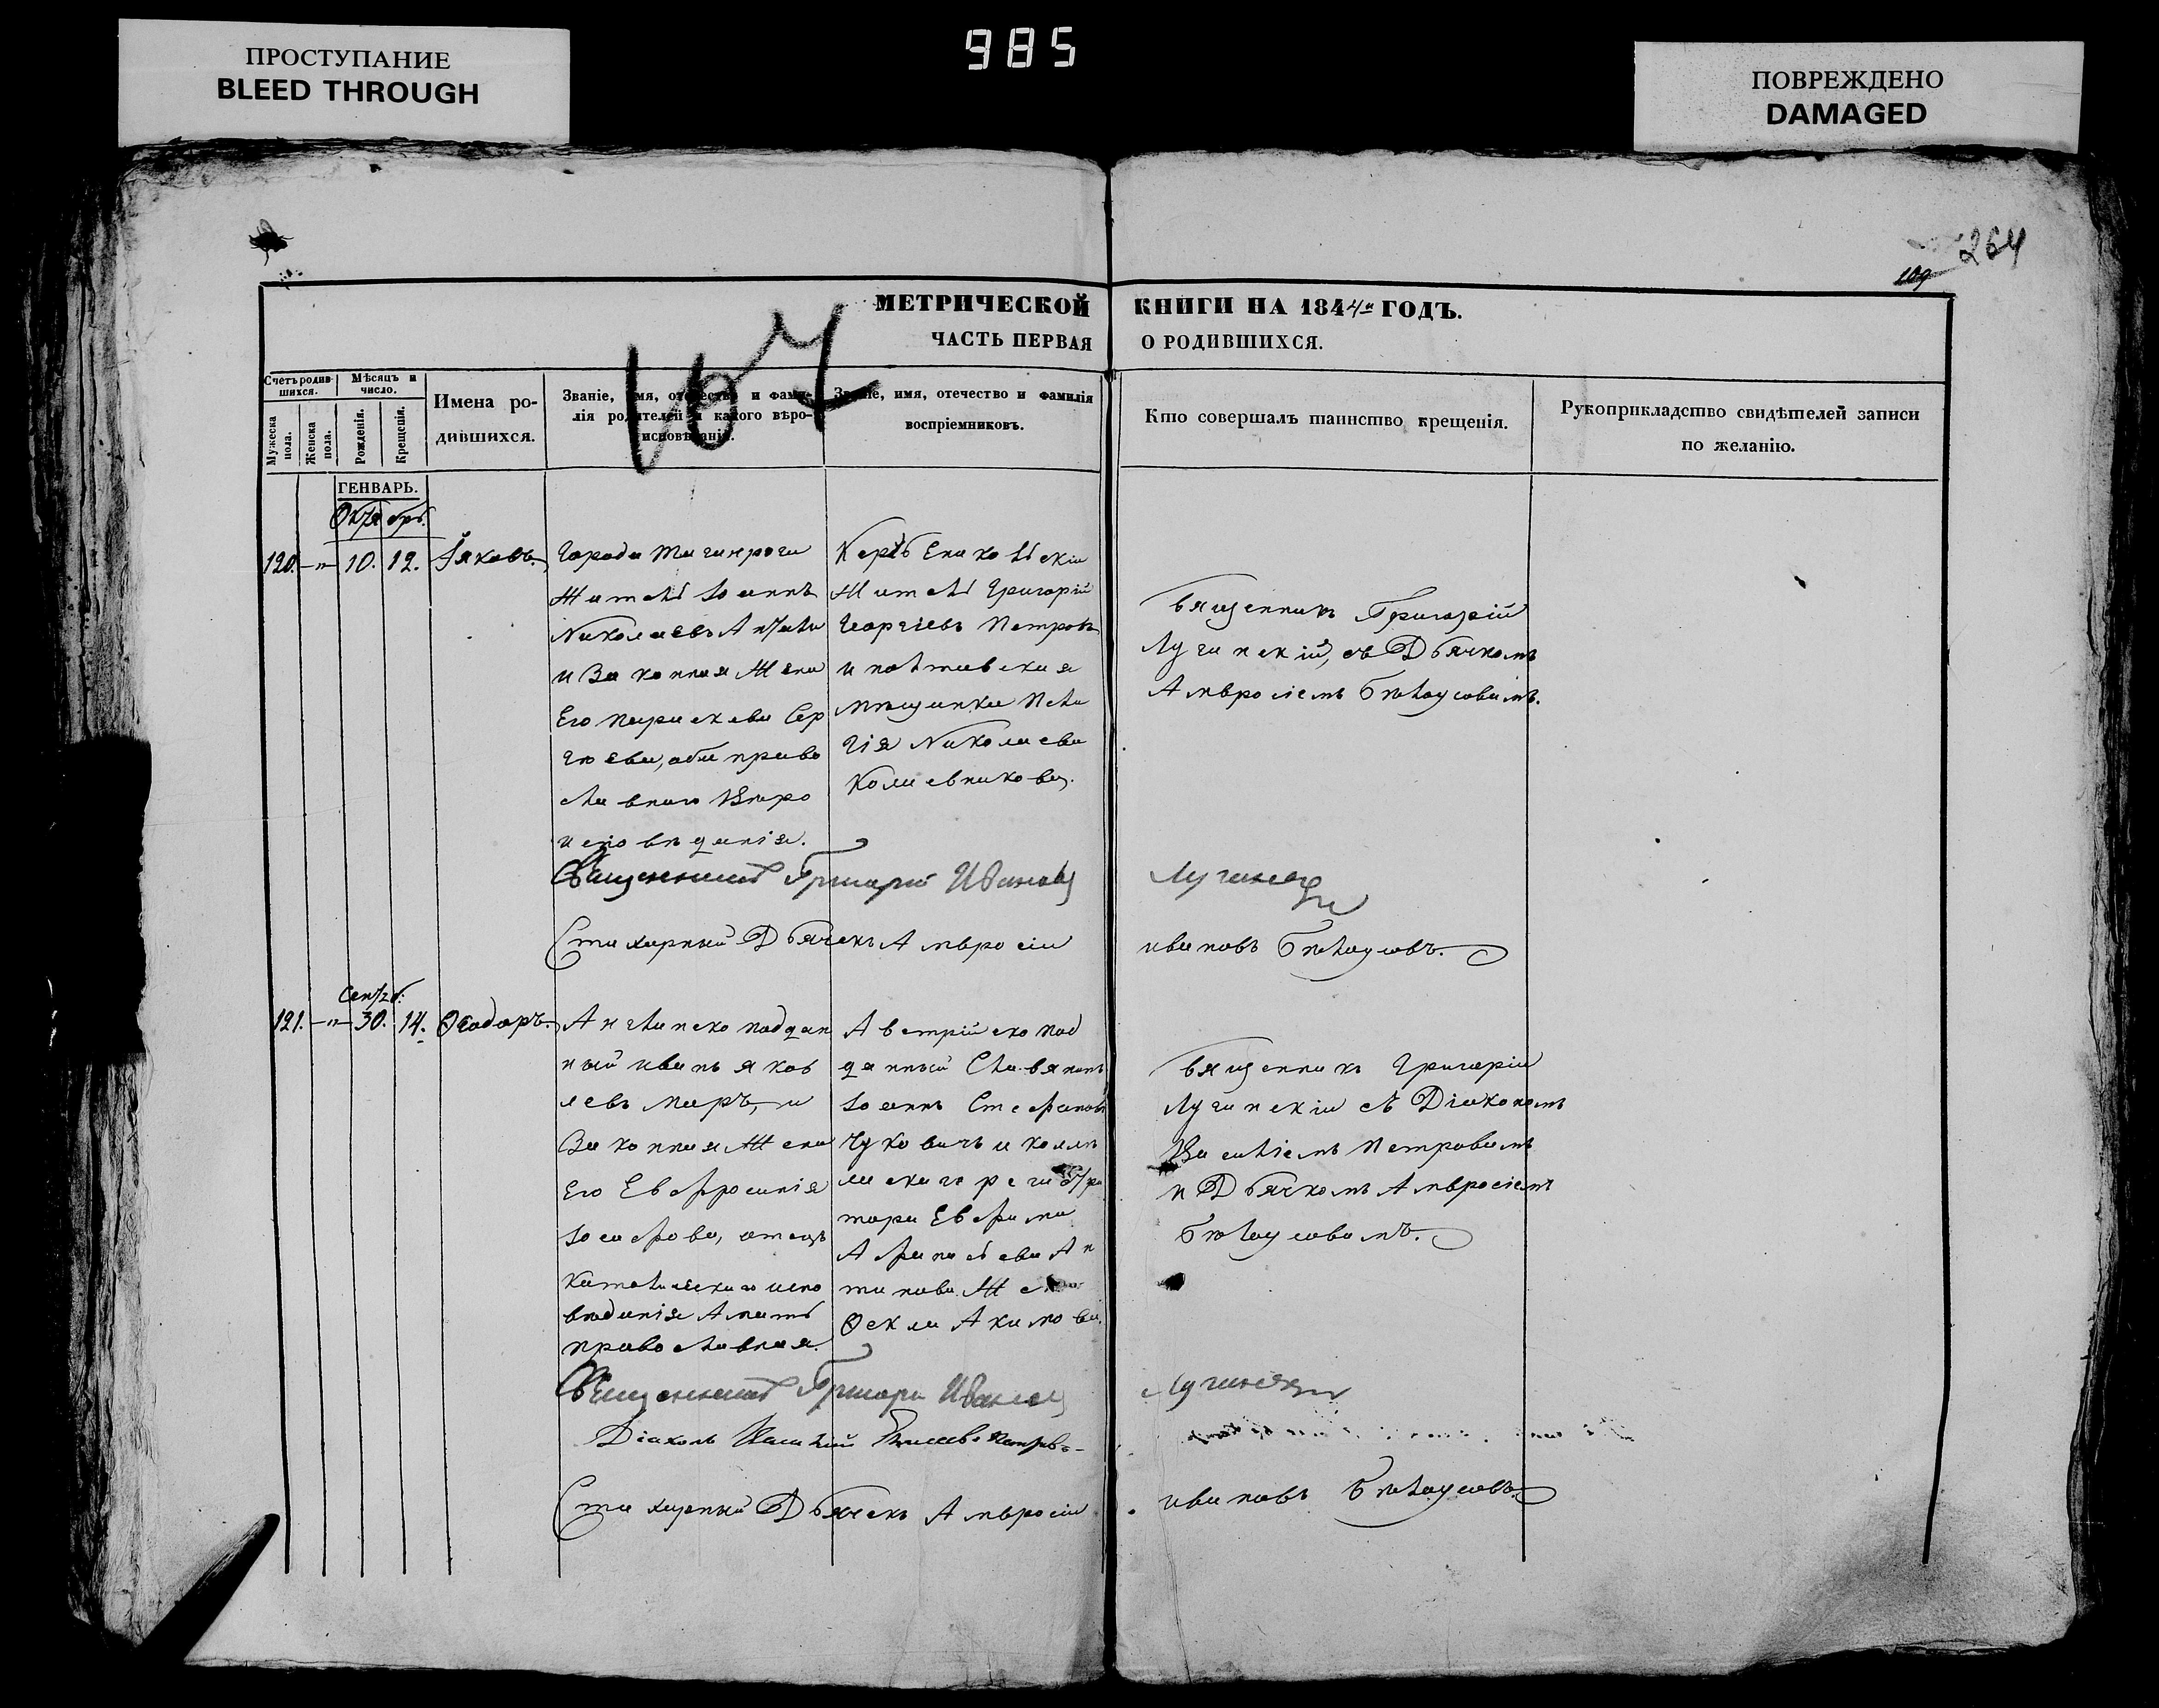 ПРОСТУПАНИЕ
BLEED THROUGH
985
ПОВРЕЖДЕНО
DAMAGED
264
109
МЕТРИЧЕСКОЙ КНИГИ НА 1844й ГОДЪ.
ЧАСТЬ ПЕРВАЯ О РОДИВШИХСЯ.
107
Счетъ родив-
шихся.
Мужеска
пола.
Женска
пола.
Мѣсяцъ и
число.
Рожденія.
Крещенія.
Имена ро-
дившихся.
Званіе, имя, отечество и фами-
лія родителей и какого вѣро-
исповѣданія.
Званіе, имя, отечество и фамилія
воспріемниковъ.
Кто совершалъ таинство крещенія.
Рукоприкладство свидѣтелей записи
по желанію.
ГЕНВАРЬ.
Октябрь.
120. -"- 10. 12. Іяковъ.
Города Таганрога
Житель Іоаннъ
Николаевъ
и Законная Жена
Его Параскева Сер
гѣева, оба право
славнаго вѣро
исповѣданія.
Керчь Ениколскій
Житель Григорій
Георгіевъ Петровъ
и полтавская
мѣщанка Пела
гія Николаева
Священникъ Григорій
Лугинскій, съ Дьячкомъ
Амвросіемъ Бѣлоусовымъ.
Священникъ Григорій Ивановъ Лугинскій
Стихарный Дьячекъ Амвросій Ивановъ Бѣлоусовъ.
Сентяб:
121. -"- 30. 14. Ѳеодоръ.
Англинско поддан
ный иванъ яков
левъ Маръ, и
Законная Жена
Его Евфросинія
Іосифова, отецъ
Католическаго испо
вѣданія А мать
православная.
Австрійско под
данный Славянинъ
Іоаннъ Стефановъ
Чуковичъ и колле
скаго регистра
тора Евфима
Афанасьева Ан
типова Жена
Ѳекла Акимова.
Священникъ Григорій
Лугинскій съ Діакономъ
Василіемъ Петровымъ
и Дьячкомъ Амвросіемъ
Бѣлоусовымъ.
Священникъ Григорій Ивановъ Лугинскій
Діаконъ Василій Петровъ
Стихарный Дьячекъ Амвросій ивановъ Бѣлоусовъ